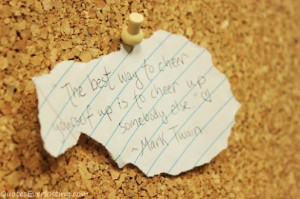 "The best way to cheer
yourself up is to cheer up
somebody else."
~Mark Twain
QuotesEverlasting.com